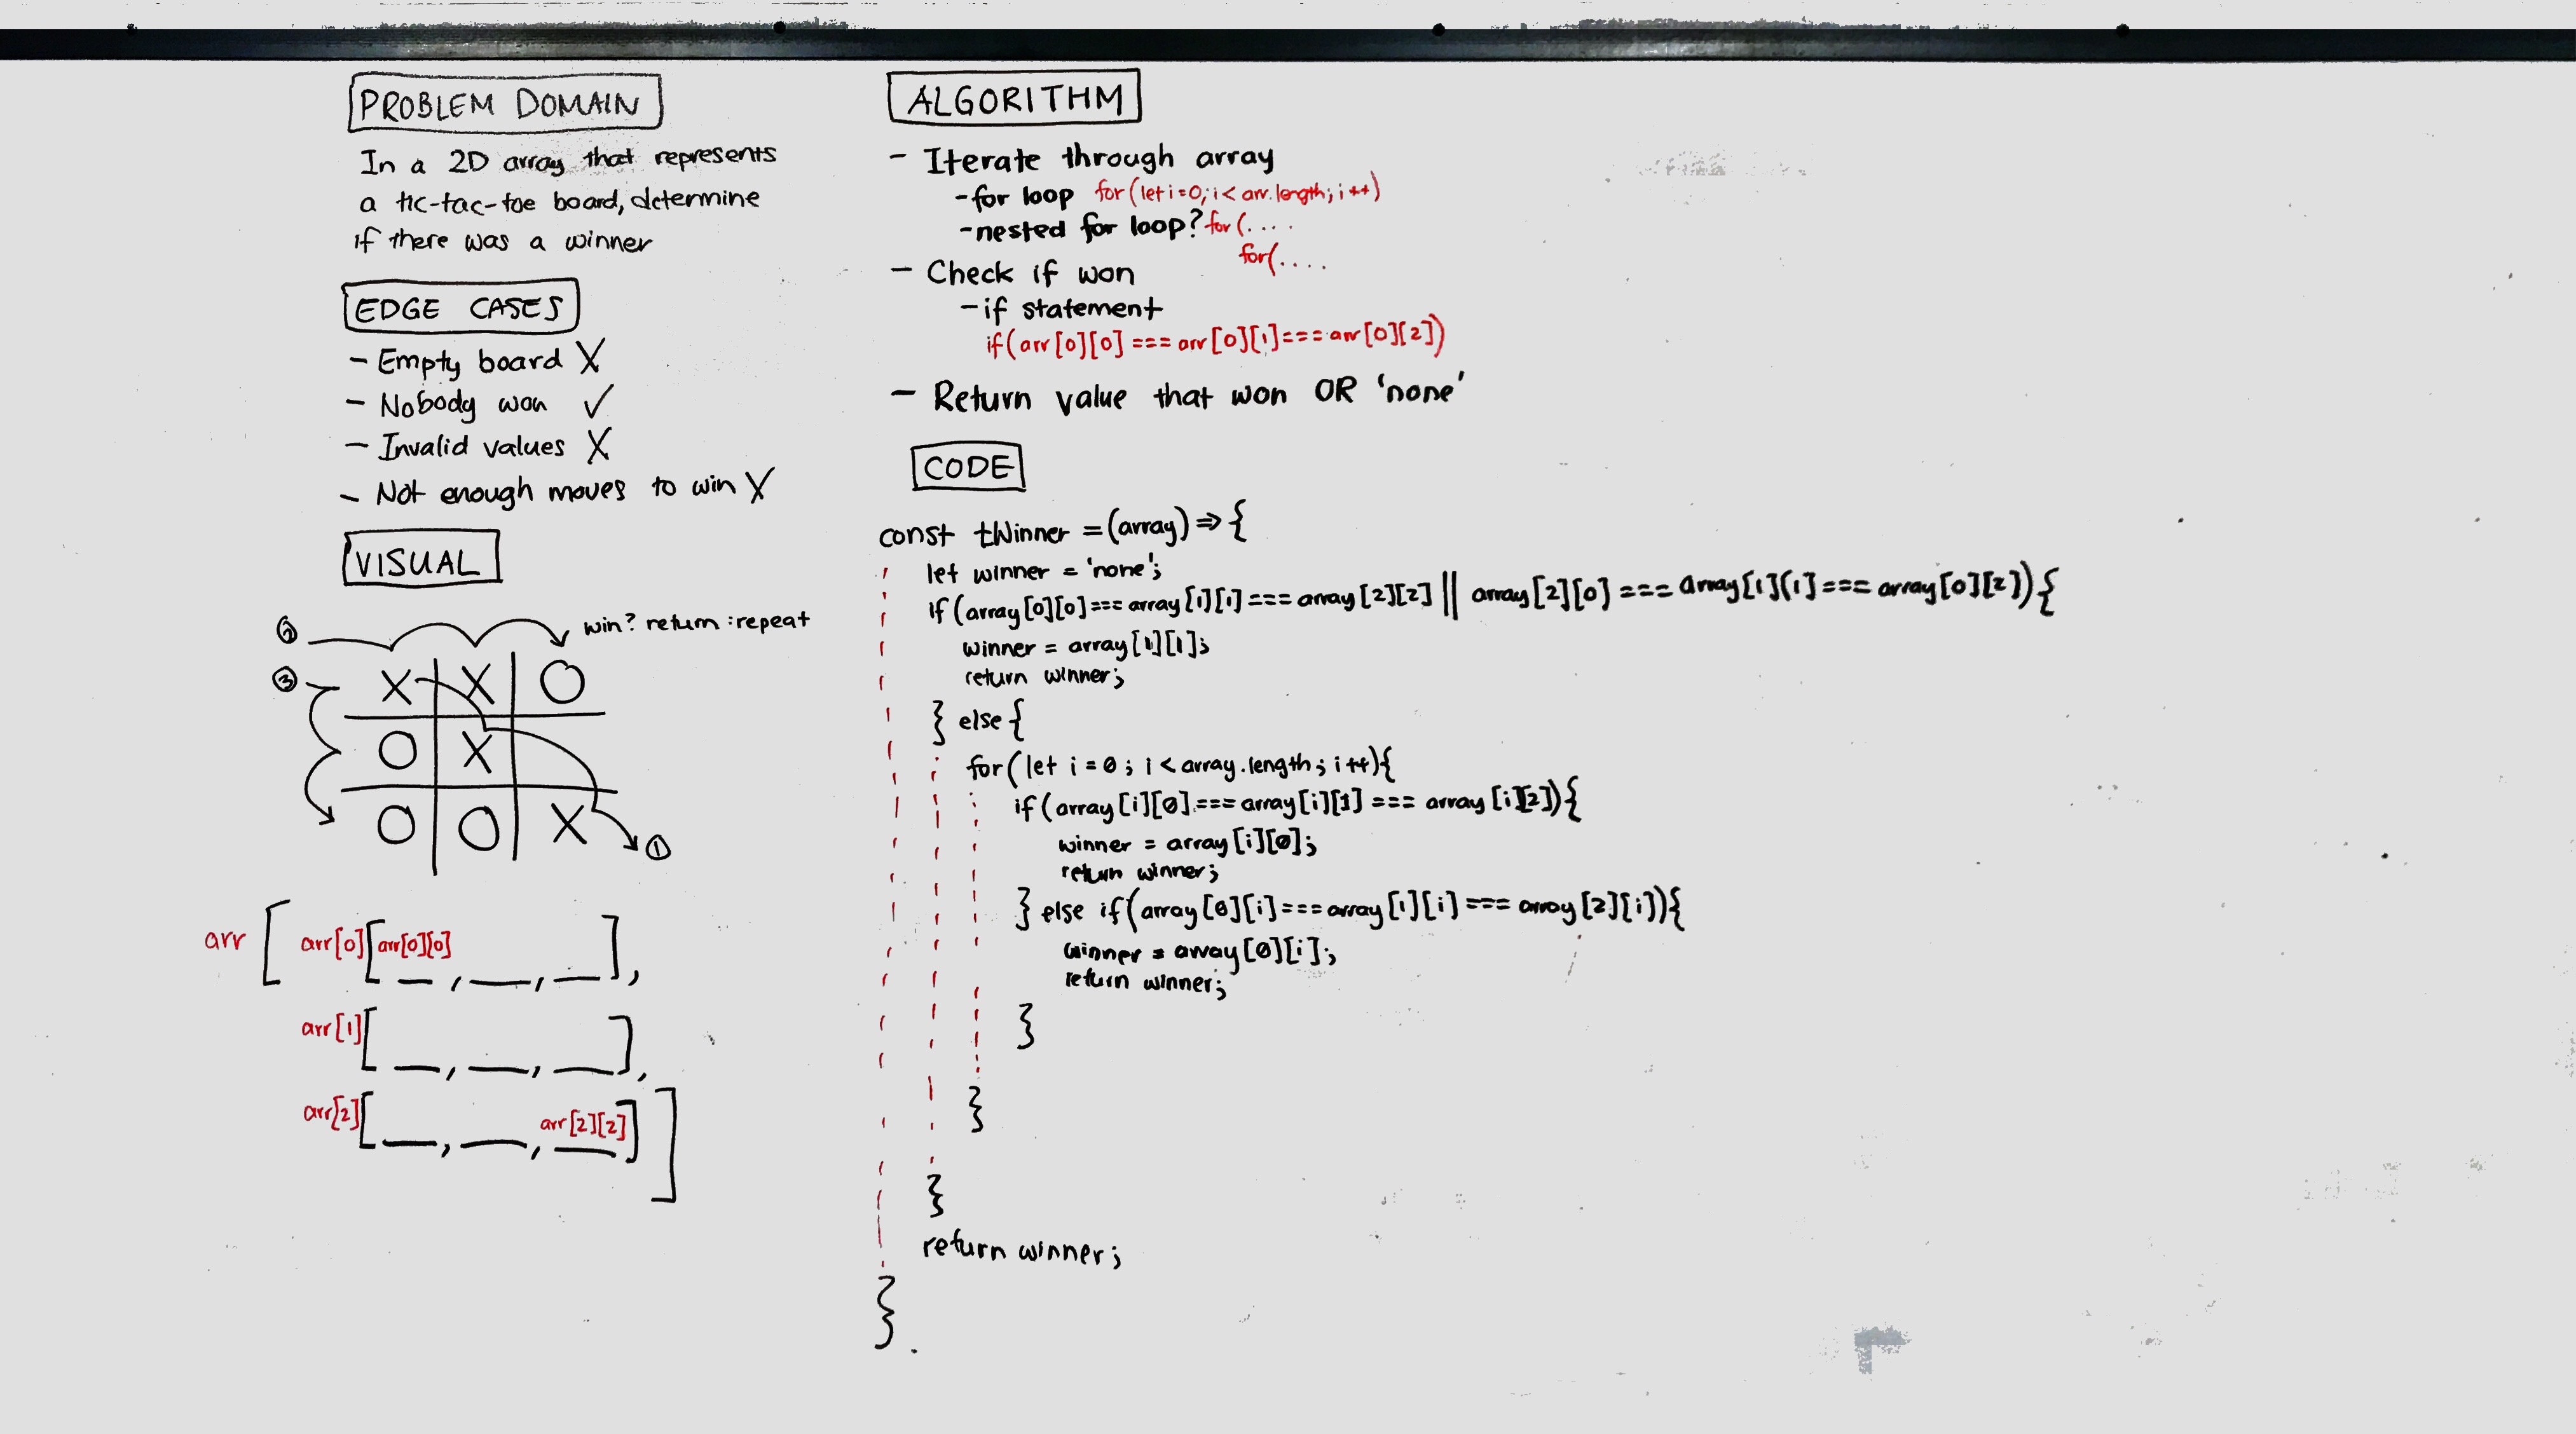 PROBLEM DOMAIN
In a 2D array that represents
a tic-tac-toe board, determine
if there was a winner
EDGE CASES
- Empty board X
- Nobody won ✓
- Invalid values X
- Not enough moves to win X
VISUAL
② win? return : repeat
③ X X O
O X
O O X ①
arr [ arr[0] [ arr[0][0] __, __, __ ],
arr[1] [ __, __, __ ],
arr[2] [ __, __, arr[2][2] ] ]
ALGORITHM
- Iterate through array
- for loop for(let i=0; i < arr.length; i++)
- nested for loop? for(....
for(....
- Check if won
- if statement
if(arr[0][0] === arr[0][1] === arr[0][2])
- Return value that won OR 'none'
CODE
const tWinner = (array) => {
let winner = 'none';
if (array[0][0] === array[1][1] === array[2][2] || array[2][0] === array[1][1] === array[0][2]) {
winner = array[1][1];
return winner;
} else {
for (let i = 0; i < array.length; i++) {
if (array[i][0] === array[i][1] === array[i][2]) {
winner = array[i][0];
return winner;
} else if (array[0][i] === array[1][i] === array[2][i]) {
winner = array[0][i];
return winner;
}
}
}
return winner;
}